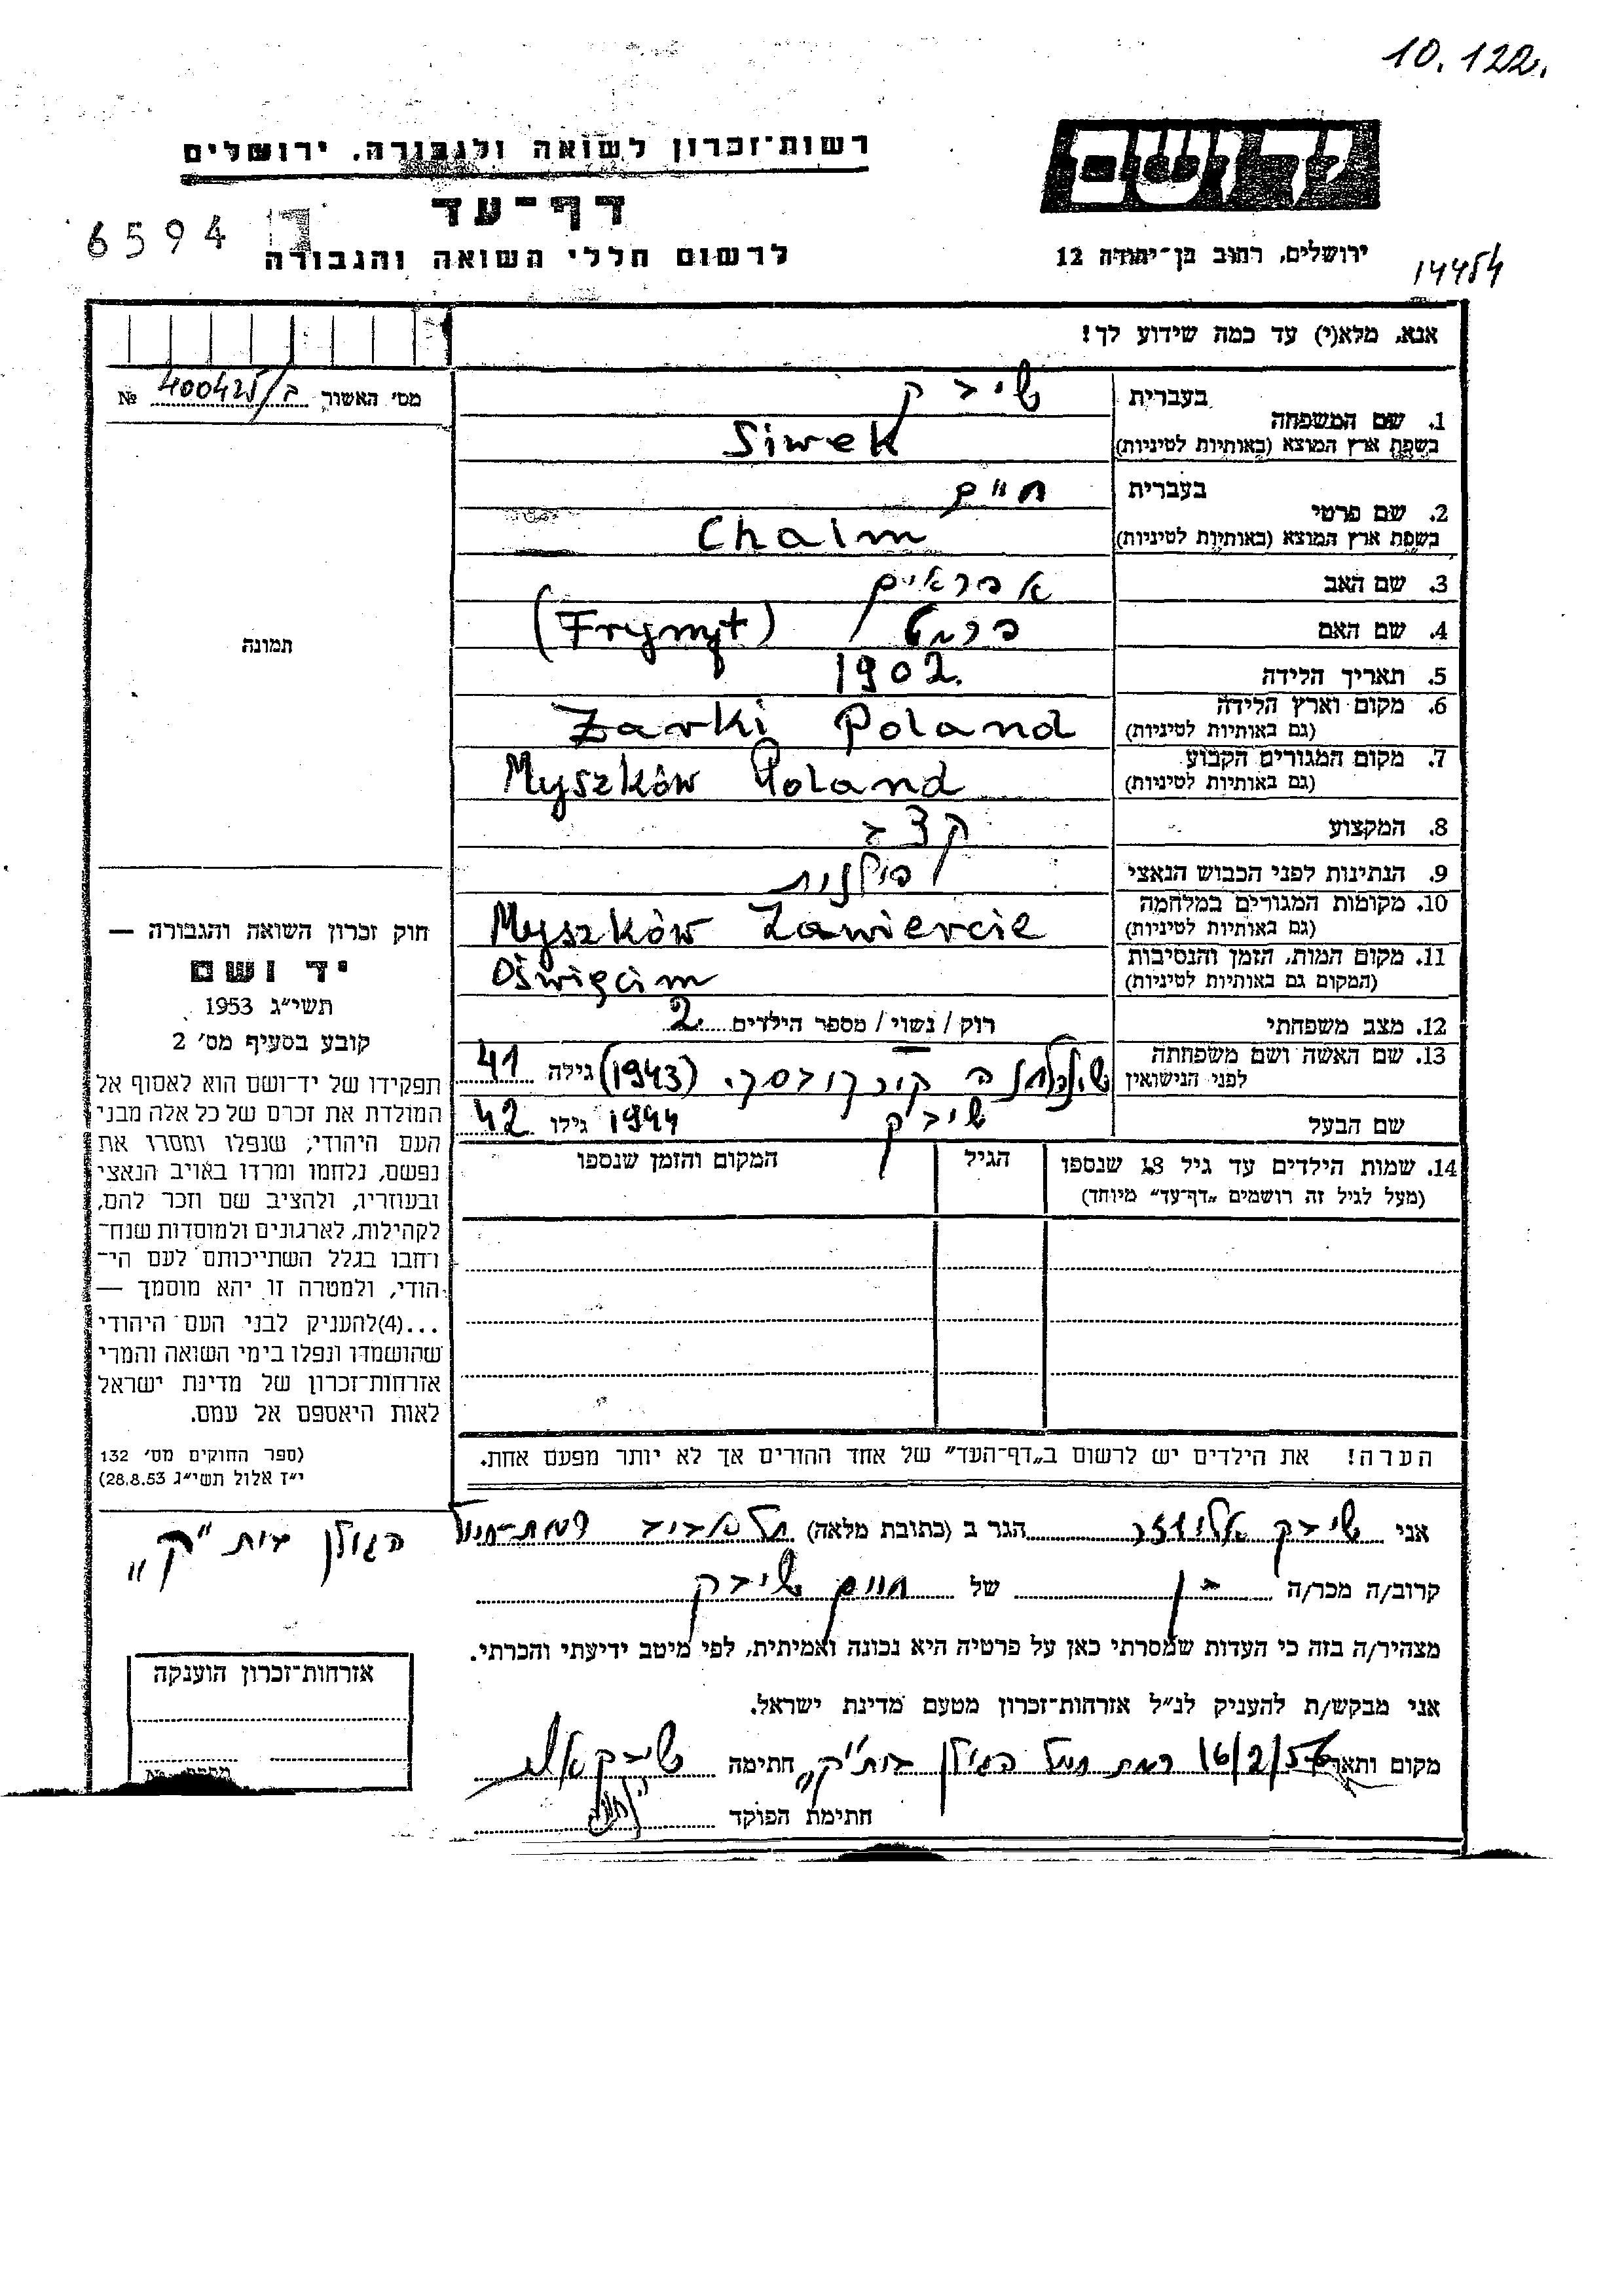 10.122.
רשות־זכרון לשואה ולגבורה, ירושלים
יד ושם
דף־עד
6594
לרשום חללי השואה והגבורה
ירושלים, רחוב בן־יהודה 12
אנא, מלא(י) עד כמה שידוע לך!
מס׳ האשור 400425/ב №
תמונה
1. שם המשפחה
בעברית שיבק
בשפת ארץ המוצא (באותיות לטיניות) Siwek
2. שם פרטי
בעברית חיים
בשפת ארץ המוצא (באותיות לטיניות) Chaim
3. שם האב אבראים
4. שם האם פרמט (Frymyt)
5. תאריך הלידה 1902.
6. מקום וארץ הלידה
(גם באותיות לטיניות) Żarki Poland
7. מקום המגורים הקבוע
(גם באותיות לטיניות) Myszków Poland
8. המקצוע קצב
9. הנתינות לפני הכבוש הנאצי פולנית
10. מקומות המגורים במלחמה
(גם באותיות לטיניות) Myszków Zawiercie
11. מקום המות, הזמן והנסיבות
(המקום גם באותיות לטיניות) Oświęcim
12. מצב משפחתי רוק / נשוי / מספר הילדים 2
13. שם האשה ושם משפחתה
לפני הנישואין (1943) גילה 41
שם הבעל שיבק 1944 גילו 42
14. שמות הילדים עד גיל 18 שנספו
(מעל לגיל זה רושמים „דף־עד״ מיוחד)
הגיל
המקום והזמן שנספו
הערה! את הילדים יש לרשום ב„דף־העד״ של אחד ההורים אך לא יותר מפעם אחת.
חוק זכרון השואה והגבורה —
יד ושם
תשי״ג 1953
קובע בסעיף מס׳ 2
תפקידו של יד־ושם הוא לאסוף אל
המולדת את זכרם של כל אלה מבני
העם היהודי, שנפלו ומסרו את
נפשם, נלחמו ומרדו באויב הנאצי
ובעוזריו, ולהציב שם וזכר להם,
לקהילות, לארגונים ולמוסדות שנח־
רחבו בגלל השתייכותם לעם הי־
הודי, ולמטרה זו יהא מוסמך —
...(4)להעניק לבני העם היהודי
שהושמדו ונפלו בימי השואה והמרי
אזרחות־זכרון של מדינת ישראל
לאות היאספם אל עמם.
(ספר החוקים מס׳ 132
י״ז אלול תשי״ג 28.8.53)
אני שיבק אליעזר הגר ב (כתובת מלאה) תל אביב רמת-חיל
הגולן בית "ק"
קרוב/ה מכר/ה בן של חיים שיבק
מצהיר/ה בזה כי העדות שמסרתי כאן על פרטיה היא נכונה ואמיתית, לפי מיטב ידיעתי והכרתי.
אני מבקש/ת להעניק לנ״ל אזרחות־זכרון מטעם מדינת ישראל.
מקום ותאר 16/2/56 רמת חיל הגולן בית "ק" חתימה
חתימת הפוקד
אזרחות־זכרון הוענקה